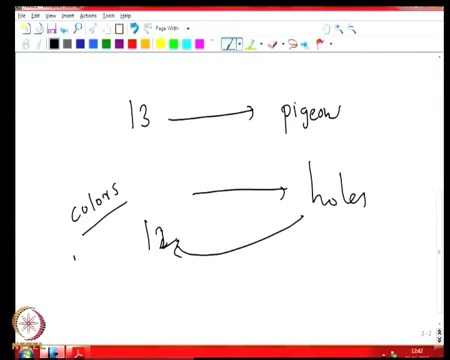 File Edit View Insert Actions Tools Help
Page Width
13 → pigeon
colors → holes
12
1/1
NPTEL
12:42